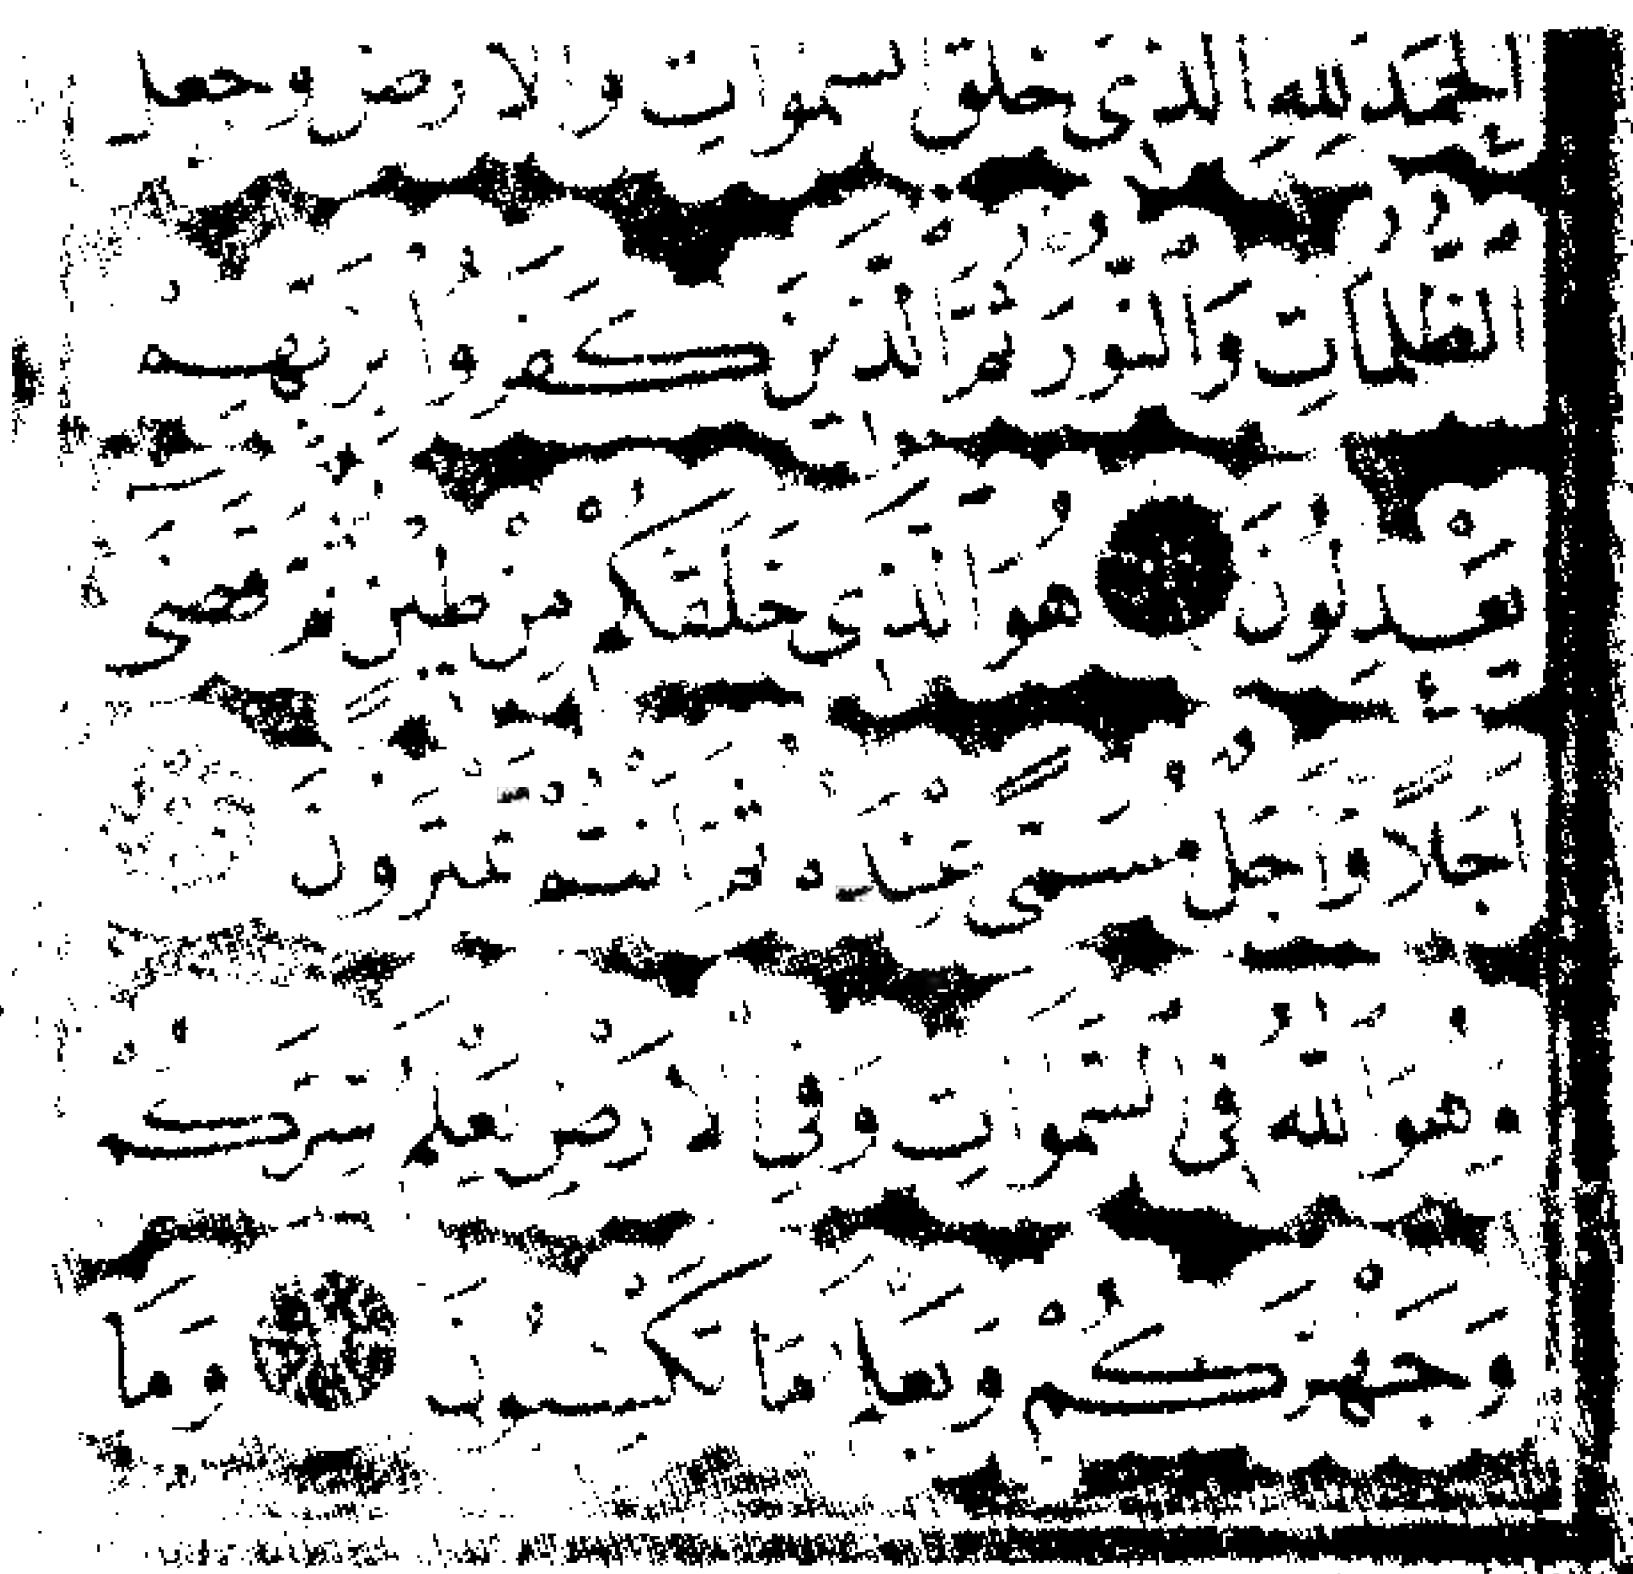 اَلْحَمْدُ لِلّٰهِ الَّذٖى خَلَقَ السَّمٰوَاتِ وَالْاَرْضَ وَجَعَلَ
الظُّلُمَاتِ وَالنُّورَ ثُمَّ الَّذٖينَ كَفَرُوا بِرَبِّهِمْ
يَعْدِلُونَ هُوَ الَّذٖى خَلَقَكُمْ مِنْ طٖينٍ ثُمَّ قَضٰٓى
اَجَلًا وَاَجَلٌ مُسَمًّى عِنْدَهُ ثُمَّ اَنْتُمْ تَمْتَرُونَ
وَهُوَ اللّٰهُ فِى السَّمٰوَاتِ وَفِى الْاَرْضِ يَعْلَمُ سِرَّكُمْ
وَجَهْرَكُمْ وَيَعْلَمُ مَا تَكْسِبُونَ وَمَا